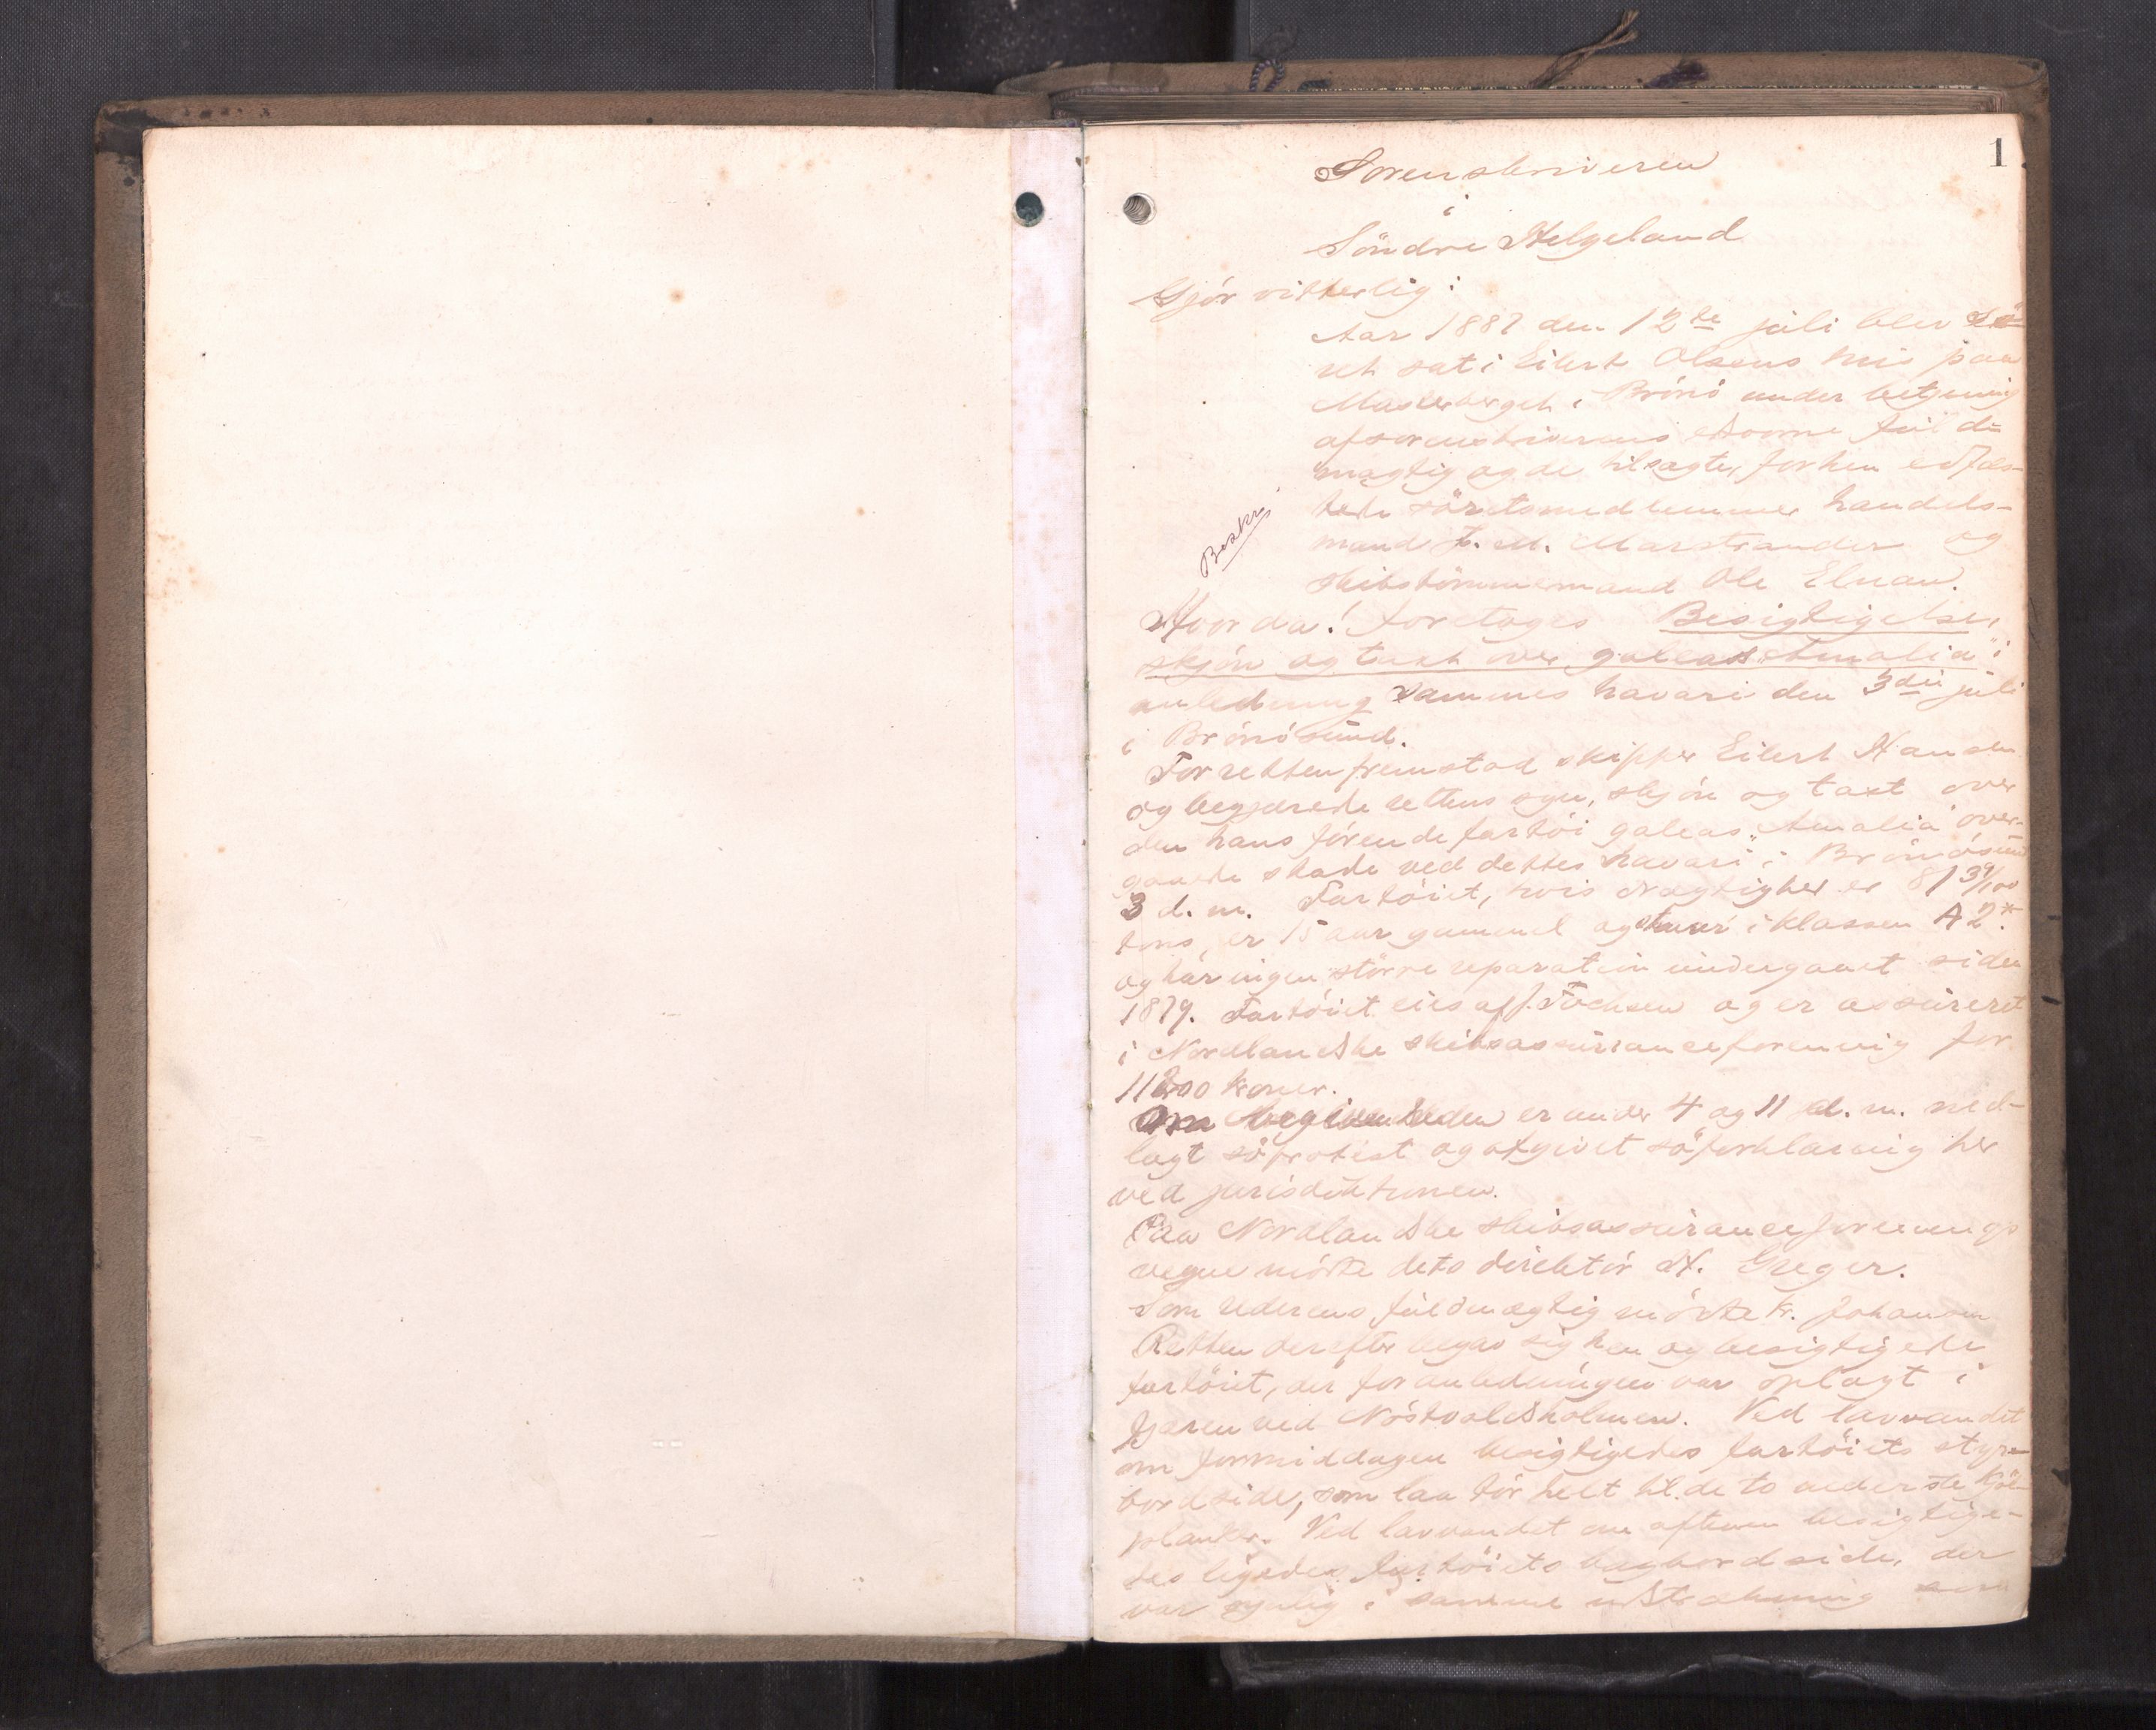 1
Sorenskriveren
i
Söndre Helgeland
Gjör vitterlig:
Aar 1887 den 12te juli blev Sö-
ret sat i Eilert Olsens hus paa
i Brönö under betjening
af sorenskriverens fuld-
mægtig og de tilsagte, forhen edfæs-
tede söretsmedlemmer handels-
mand Marstrander og
skibstömmermand Ole Elnan.
Beskr.
Hvorda! foretoges Besigtigelse,
skjön og taxt over galeas "Amalia" i
anledning sammes havari den 3die juli
i Brönösund.
For retten fremstod skipper Eilert Hansen
og begjærede rettens syn, skjön og taxt over
den hans förende fartöi galeas "Amalia" over-
gaaede skade ved dettes havari i Brönösund
3 d. m. Fartöiet, hvis drægtighed er 81 39/100
tons, er 15 aar gammel og staar i klassen A2*.
og har ingen större reparation undergaaet siden
1879. Fartöiet eies af J. Tochsen og er assureret
i Nordlandske skibsassuranceforening for
11800 kroner.
Om begivenheden er under 4 og 11 d. m. ned-
lagt söprotest og afgivet söforklaring her
ved jurisdiktionen.
Paa Nordlandske skibsassuranceforenings
vegne mödte dets direktör H. Greger.
Som rederens fuldmægtig mödte Kr. Johansen
Retten derefter begav sig hen og besigtigede
fartöiet, der for anledningen var oplagt i
fjæren ved Nöstvoldsholmen. Ved lavvandet
om formiddagen besigtigedes fartöiets styr-
bordside, som laa tör helt til de to nederste kjöl-
planker. Ved lavvandet om aftenen besigtige-
des ligedes fartöiets bagbordside, der
var synlig i samme udstrækning som